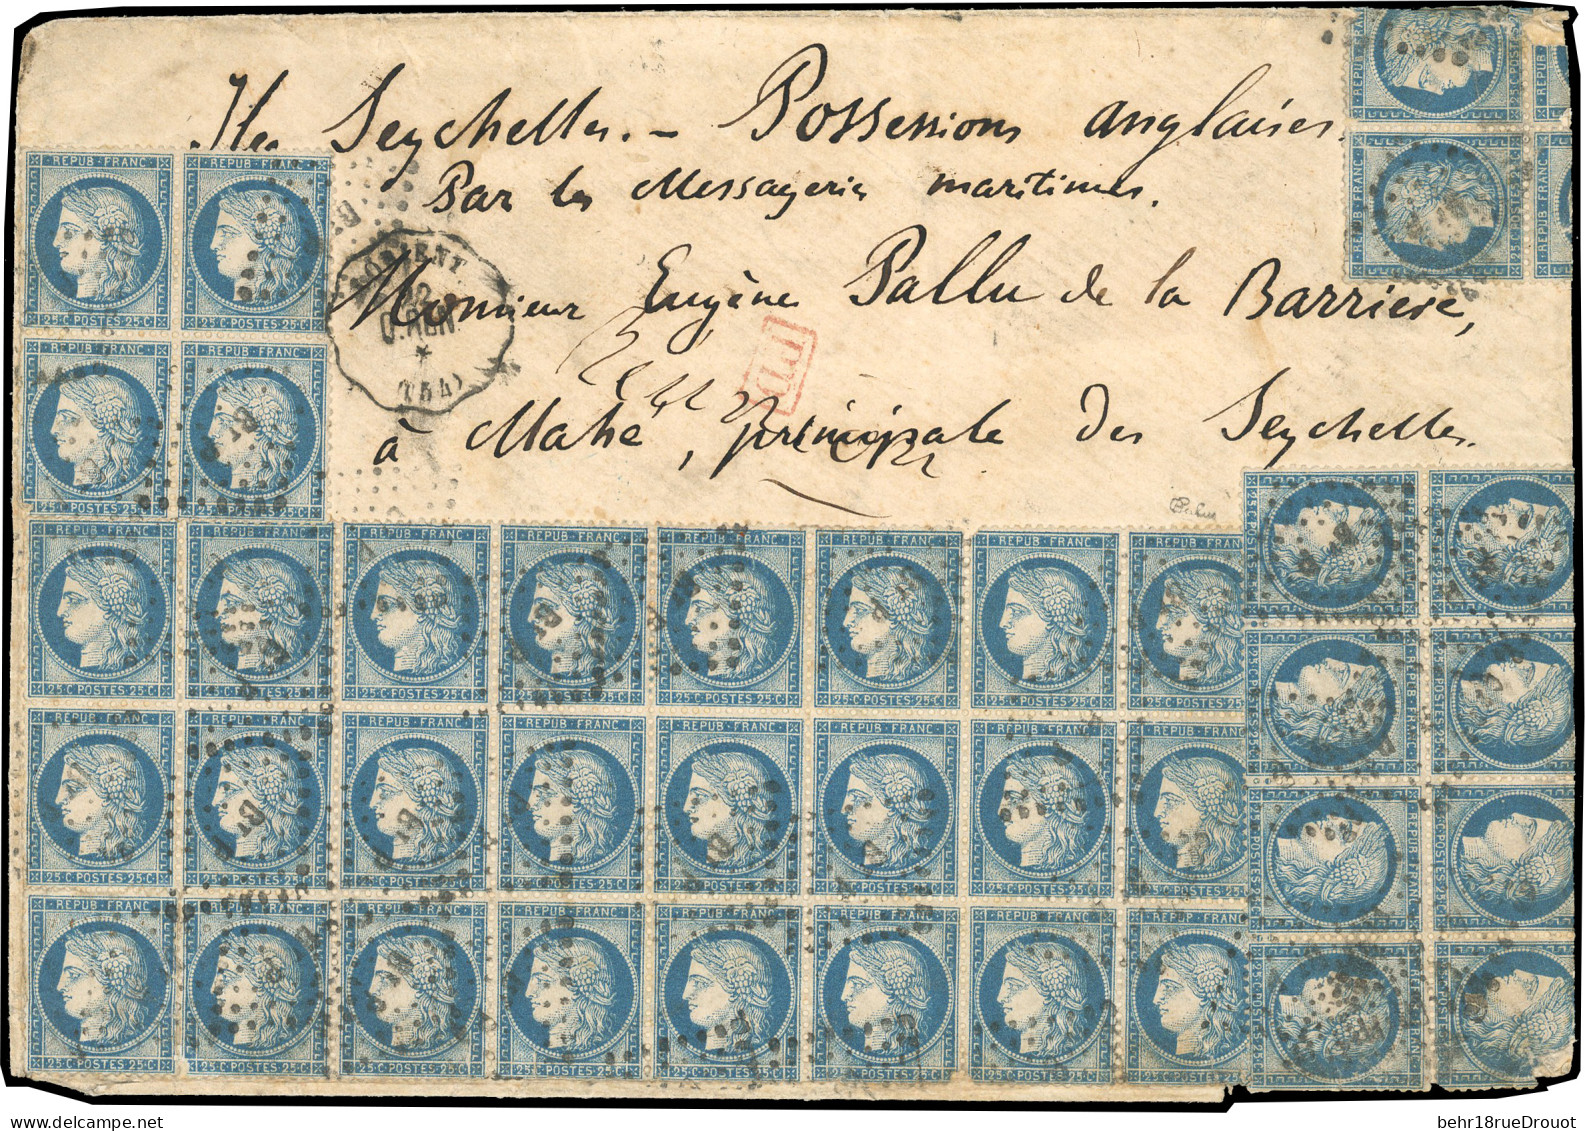 Iles Seychelles. – Possessions anglaises.
Par les Messageries maritimes.
Monsieur Eugène Pallu de la Barrière,
à Mahé, principale des Seychelles.
(T54)
P.D.
REPUB·FRANC·
25·C·POSTES·25·C
behr18rueDrouot